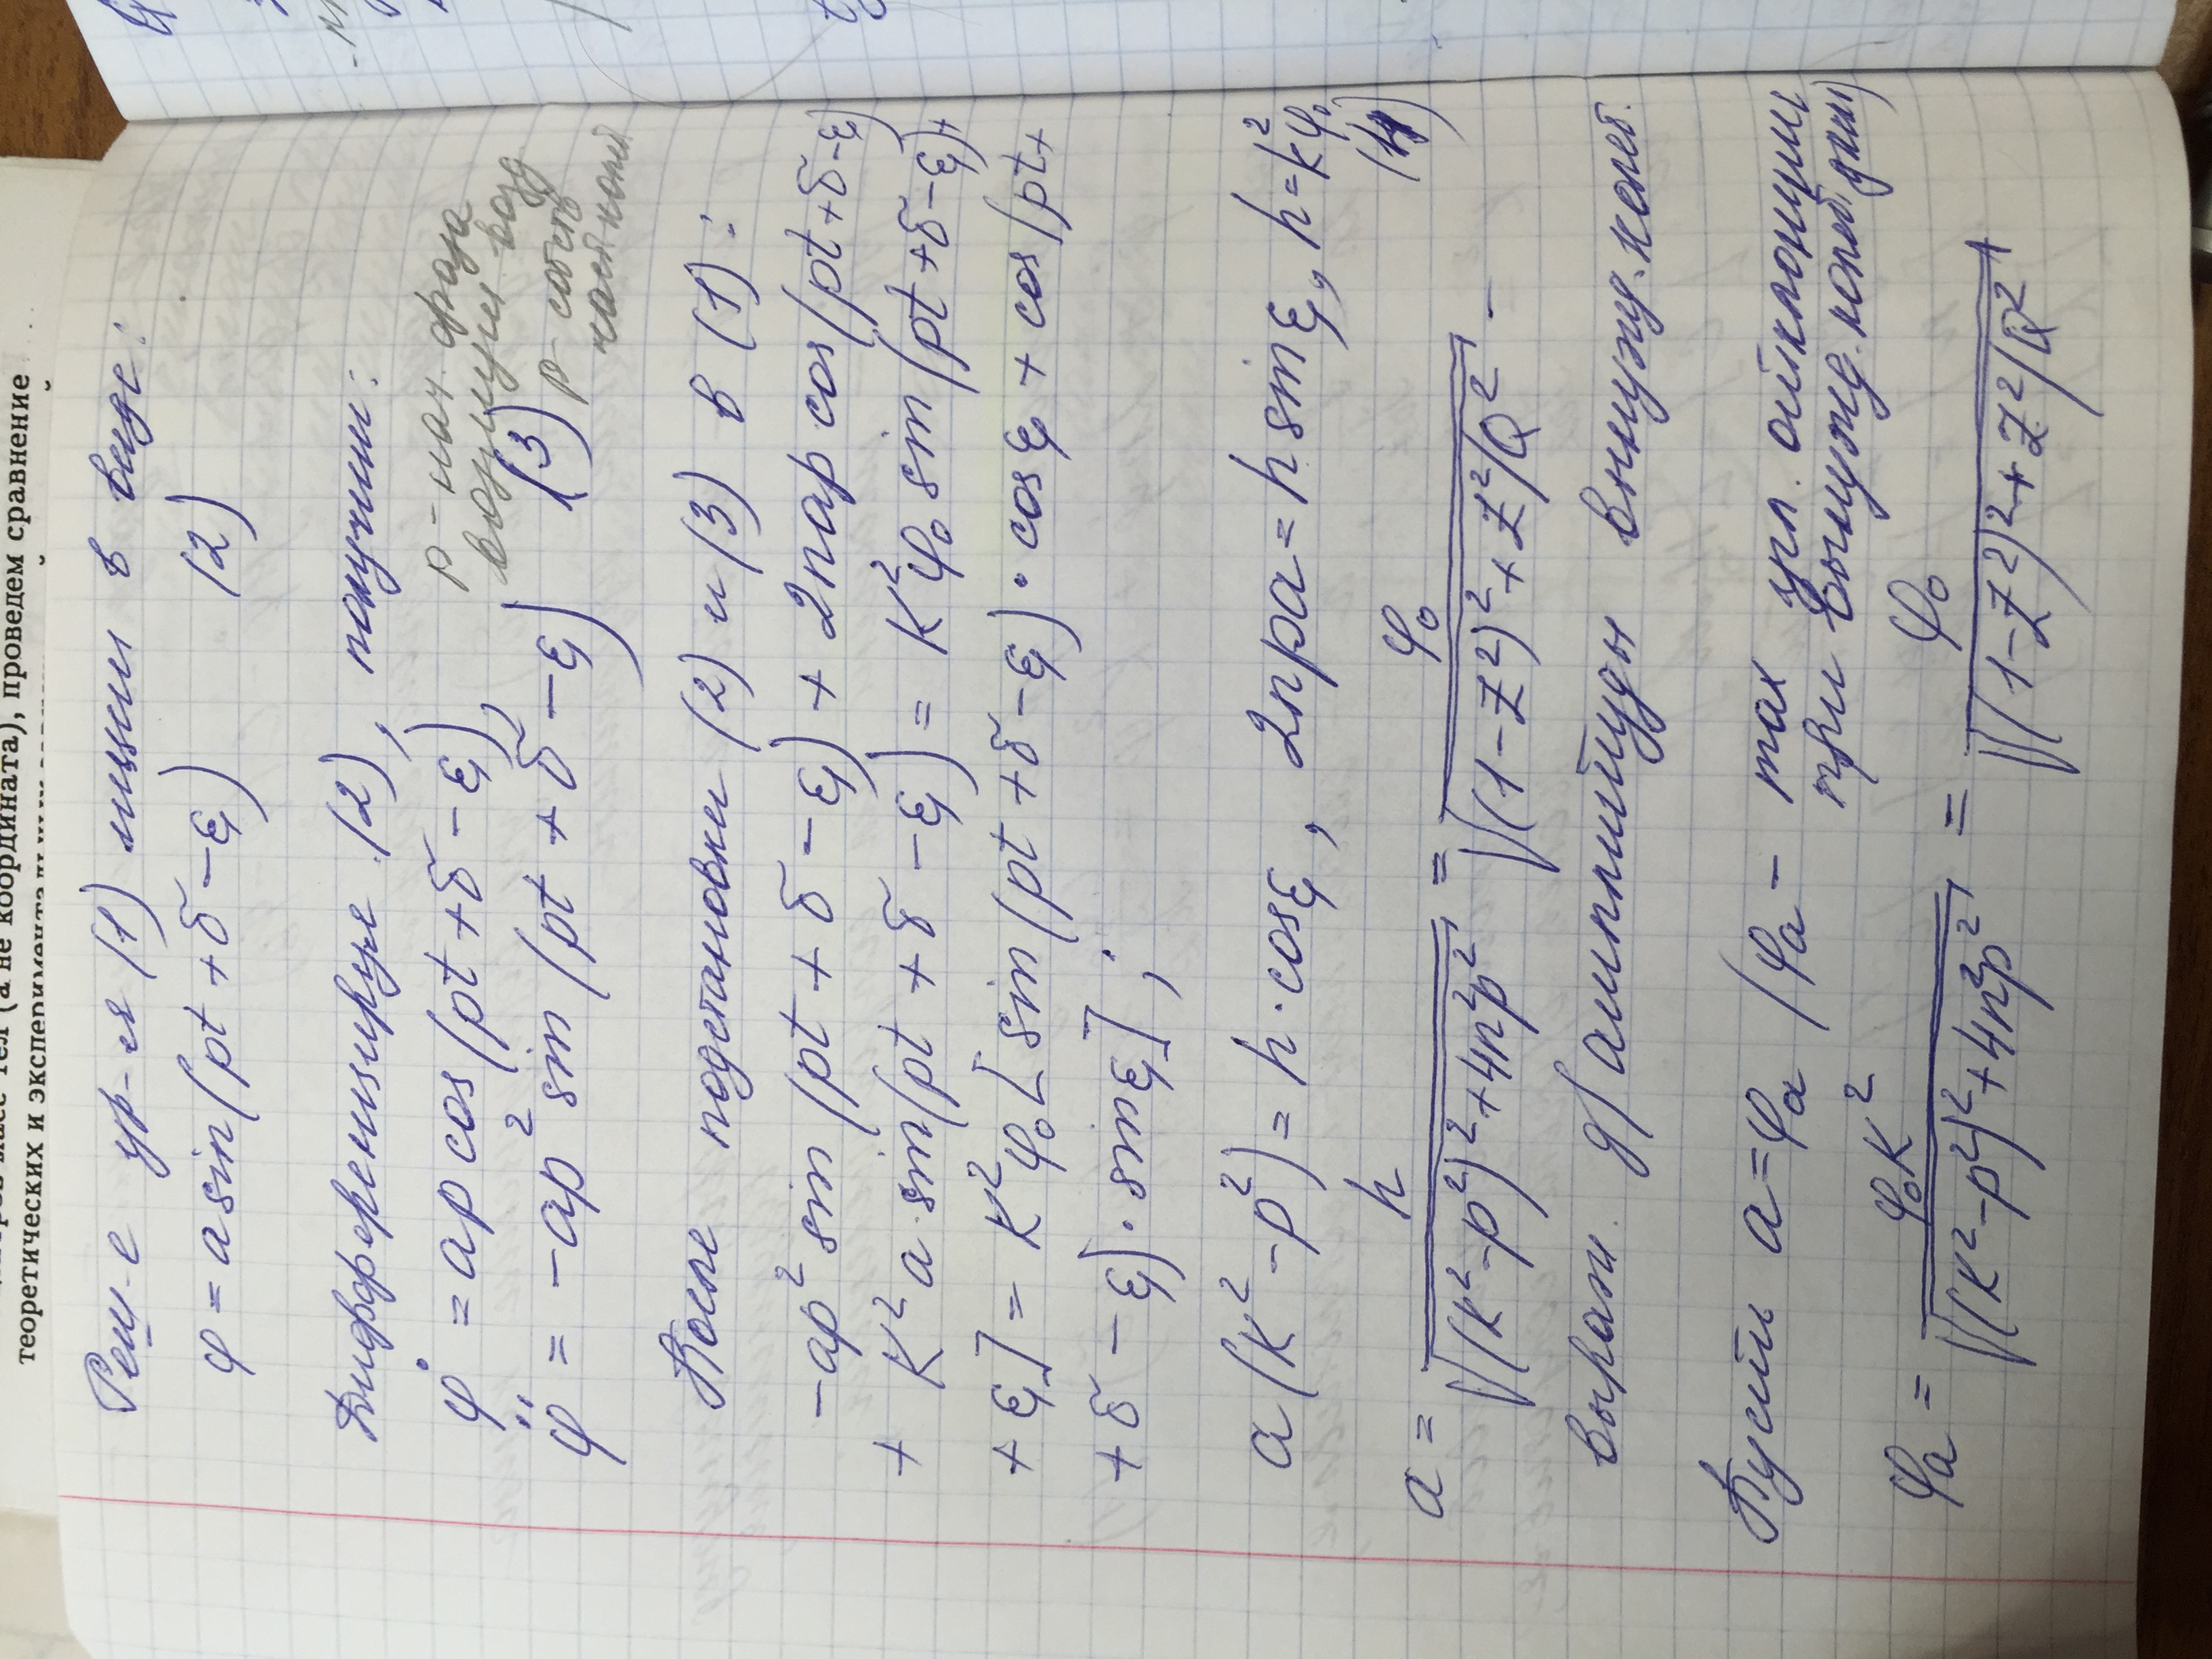 теоретических и эксперимента
тел (а не координата), проведем сравнение
Реш-е ур-ия (1) ищем в виде:
φ = a sin(pt + δ − ε) (2)
Дифференцируе (2), получим:
φ̇ = ap cos(pt + δ − ε),
φ̈ = −ap² sin(pt + δ − ε) (3)
p - нач. фаза
p - собств
После подстановки (2) и (3) в (1):
−ap² sin(pt + δ − ε) + 2nap cos(pt + δ − ε)
+ k²a sin(pt + δ − ε) = k²φ₀ sin[(pt + δ − ε) +
+ ε] = k²φ₀[sin(pt + δ − ε)·cosε + cos(pt +
+ δ − ε)·sinε];
a(k² − p²) = h·cosε, 2npa = h sinε, h = k²φ₀
(4)
a = h / √((k² − p²)² + 4n²p²) = φ₀ / √((1 − z²)² + z²/Q²) −
выраж. д/амплитуды вынужд. колеб.
Пусть a = φₐ (φₐ − max угл. отклонения
при вынужд. колеб.
φₐ = φ₀k² / √((k² − p²)² + 4n²p²) = φ₀ / √((1 − z²)² + z²/Q²)